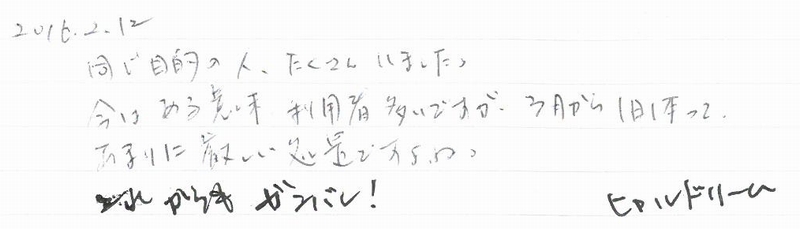 2016.2.12
同じ目的の人、たくさんいました。
今はある意味 利用者多いですが、3月から1日1本って、
あまりに厳しい処置ですよね。
これからも ガンバレ!
ヒロルドリーム